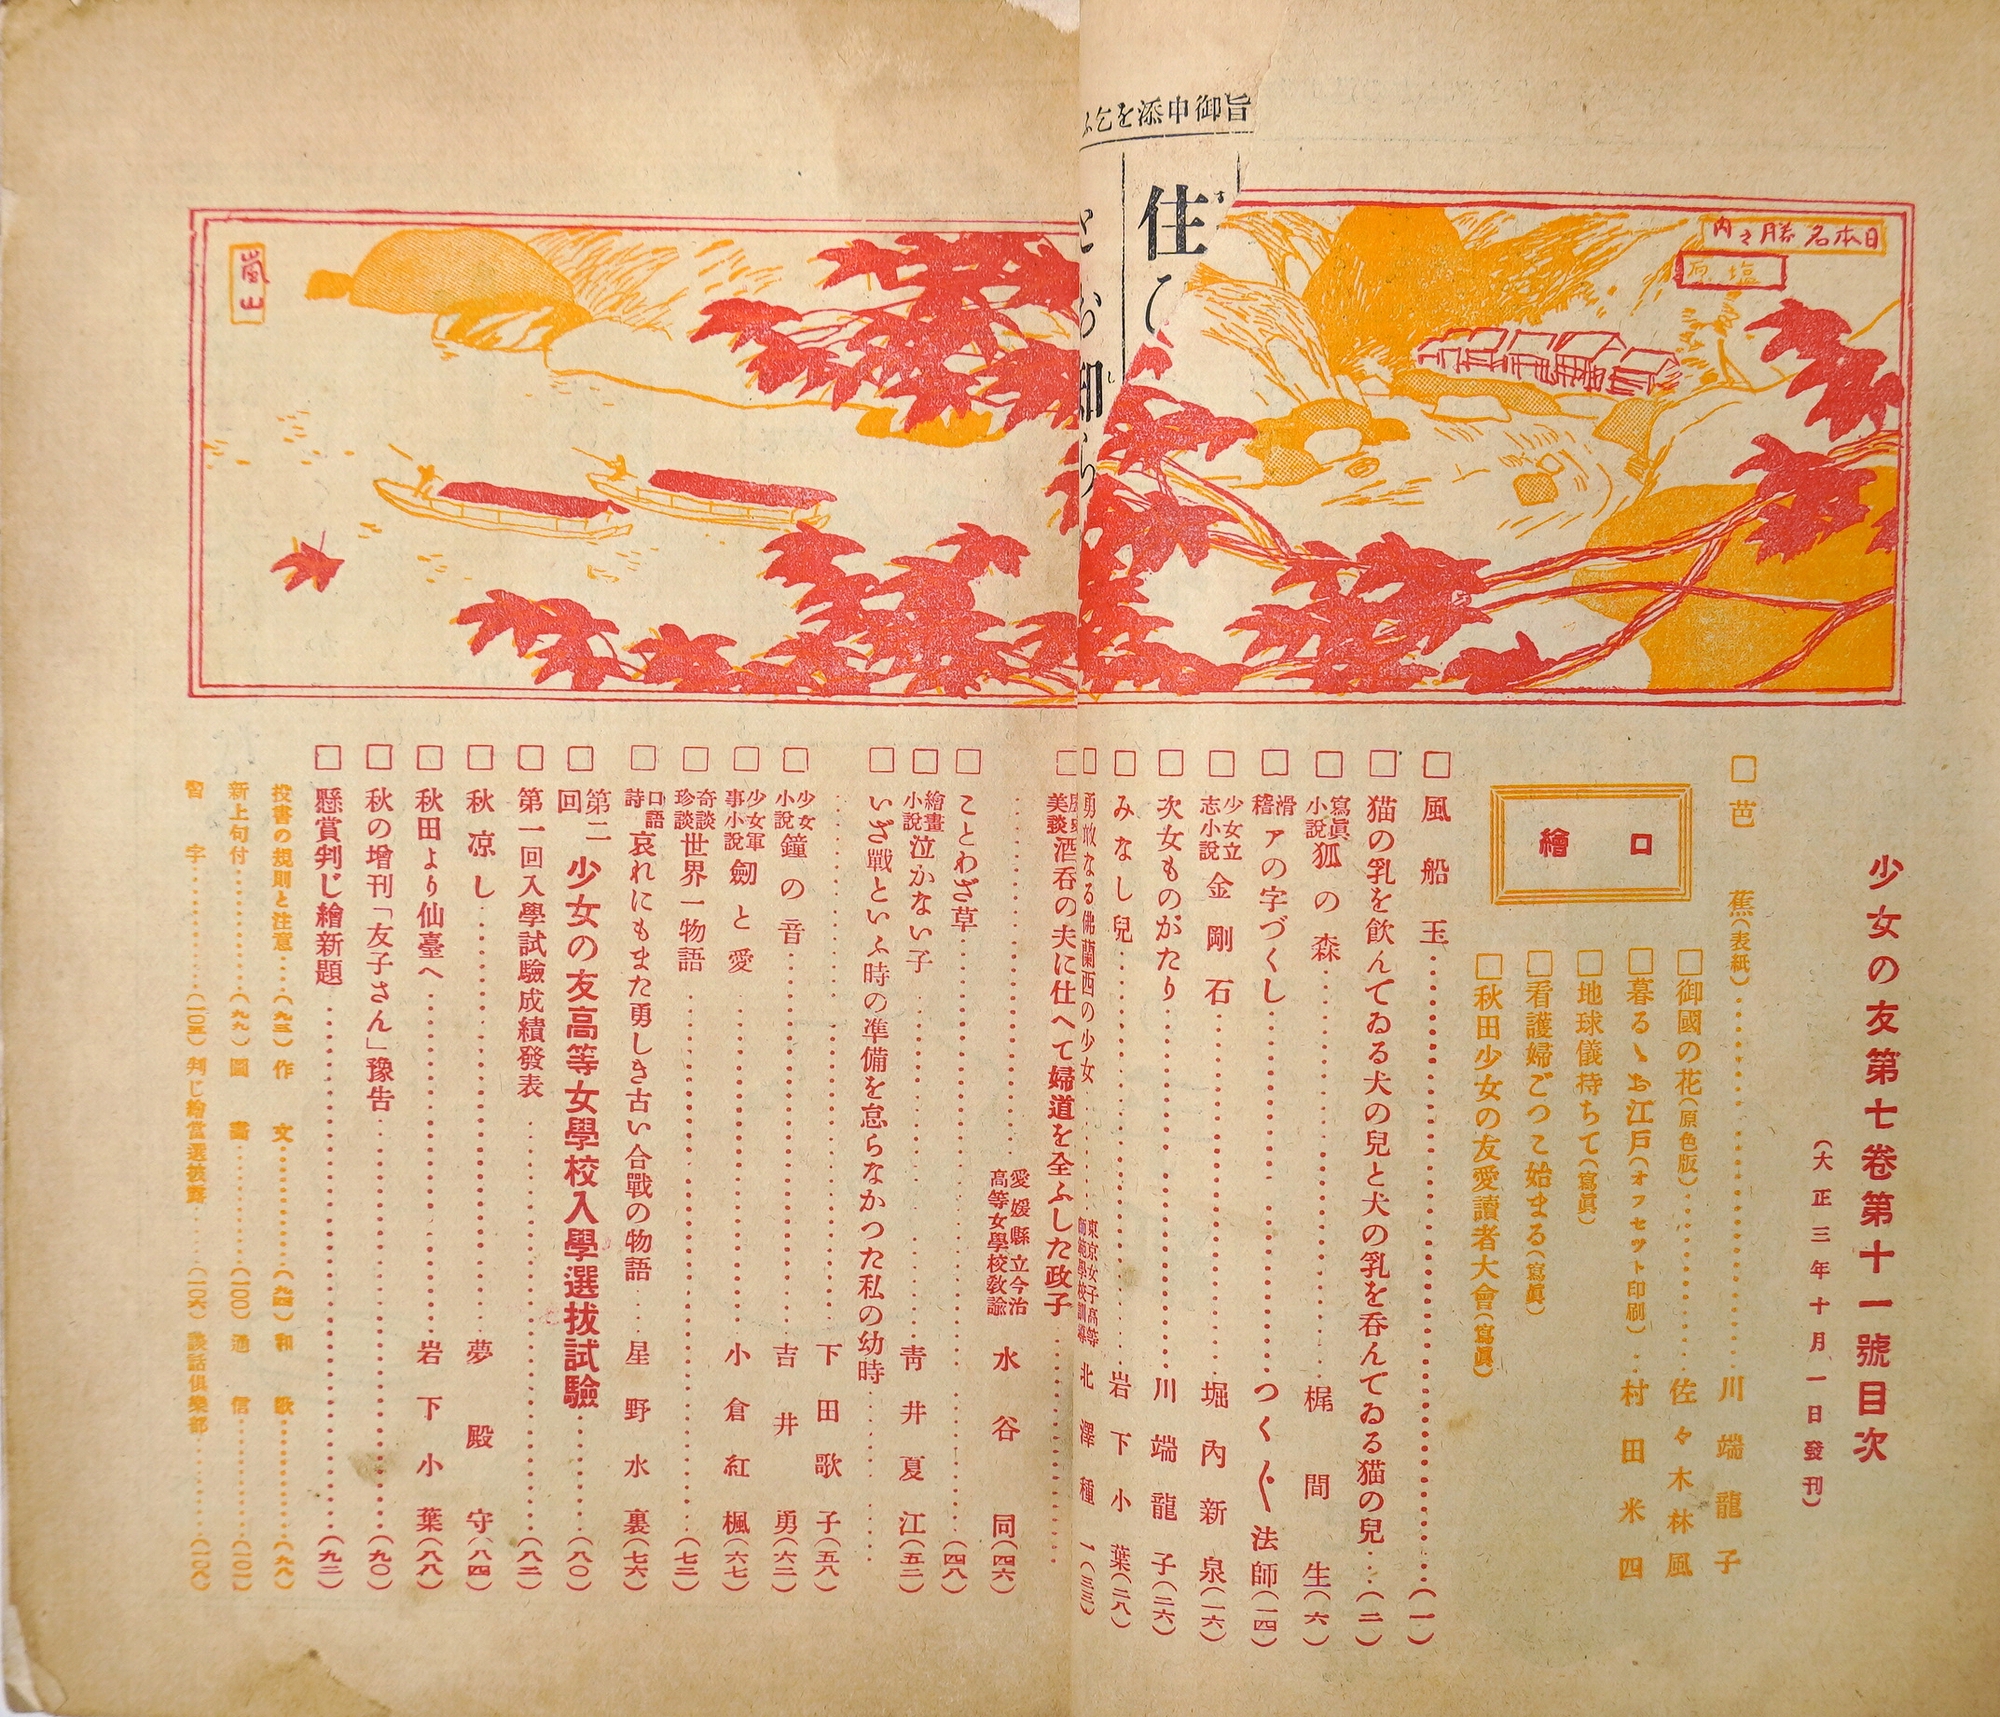 旨御申添を乞ふ
住
日本名勝之内
塩原
嵐山
少女の友第七卷第十一號目次
(大正三年十月一日發刊)
□芭蕉(表紙)‥‥川端龍子
口繪
□御國の花(原色版)‥‥佐々木林風
□暮るゝお江戸(オフセット印刷)‥‥村田米四
□地球儀持ちて(寫眞)
□看護婦ごつこ始まる(寫眞)
□秋田少女の友愛讀者大會(寫眞)
□風船玉‥‥(一)
□猫の乳を飲んてゐる犬の兒と犬の乳を呑んてゐる猫の兒‥‥(二)
□寫眞小說狐の森‥‥梶間生(六)
□滑稽アの字づくし‥‥つく〲法師(一四)
□少女立志小說金剛石‥‥堀內新泉(一六)
□次女ものがたり‥‥川端龍子(二六)
□みなし兒‥‥岩下小葉(二八)
□勇敢なる佛蘭西の少女‥‥東京女子高等師範學校訓導 北澤種一(三三)
□歷史美談酒呑の夫に仕へて婦道を全ふした政子‥‥
‥‥愛媛縣立今治高等女學校敎諭 水谷同(四六)
□ことわざ草‥‥(四八)
□繪畫小說泣かない子‥‥靑井夏江(五二)
□いざ戰といふ時の準備を怠らなかつた私の幼時‥‥
‥‥下田歌子(五八)
□少女小說鐘の音‥‥吉井勇(六二)
□少女軍事小說劒と愛‥‥小倉紅楓(六七)
□奇談珍談世界一物語‥‥(七二)
□口語詩哀れにもまた勇しき古い合戰の物語‥‥星野水裏(七六)
□第二回少女の友高等女學校入學選拔試驗‥‥(八〇)
□第一回入學試驗成績發表‥‥(八二)
□秋凉し‥‥夢殿守(八四)
□秋田より仙臺へ‥‥岩下小葉(八八)
□秋の增刊「友子さん」豫吿‥‥(九〇)
□懸賞判じ繪新題‥‥(九二)
投書の規則と注意‥‥(九三)作文‥‥(九四)和歌‥‥(九八)
新上句付‥‥(九九)圖畫‥‥(一〇〇)通信‥‥(一〇二)
習字‥‥(一〇五)判じ繪當選披露‥‥(一〇六)談話俱樂部‥‥(一〇八)